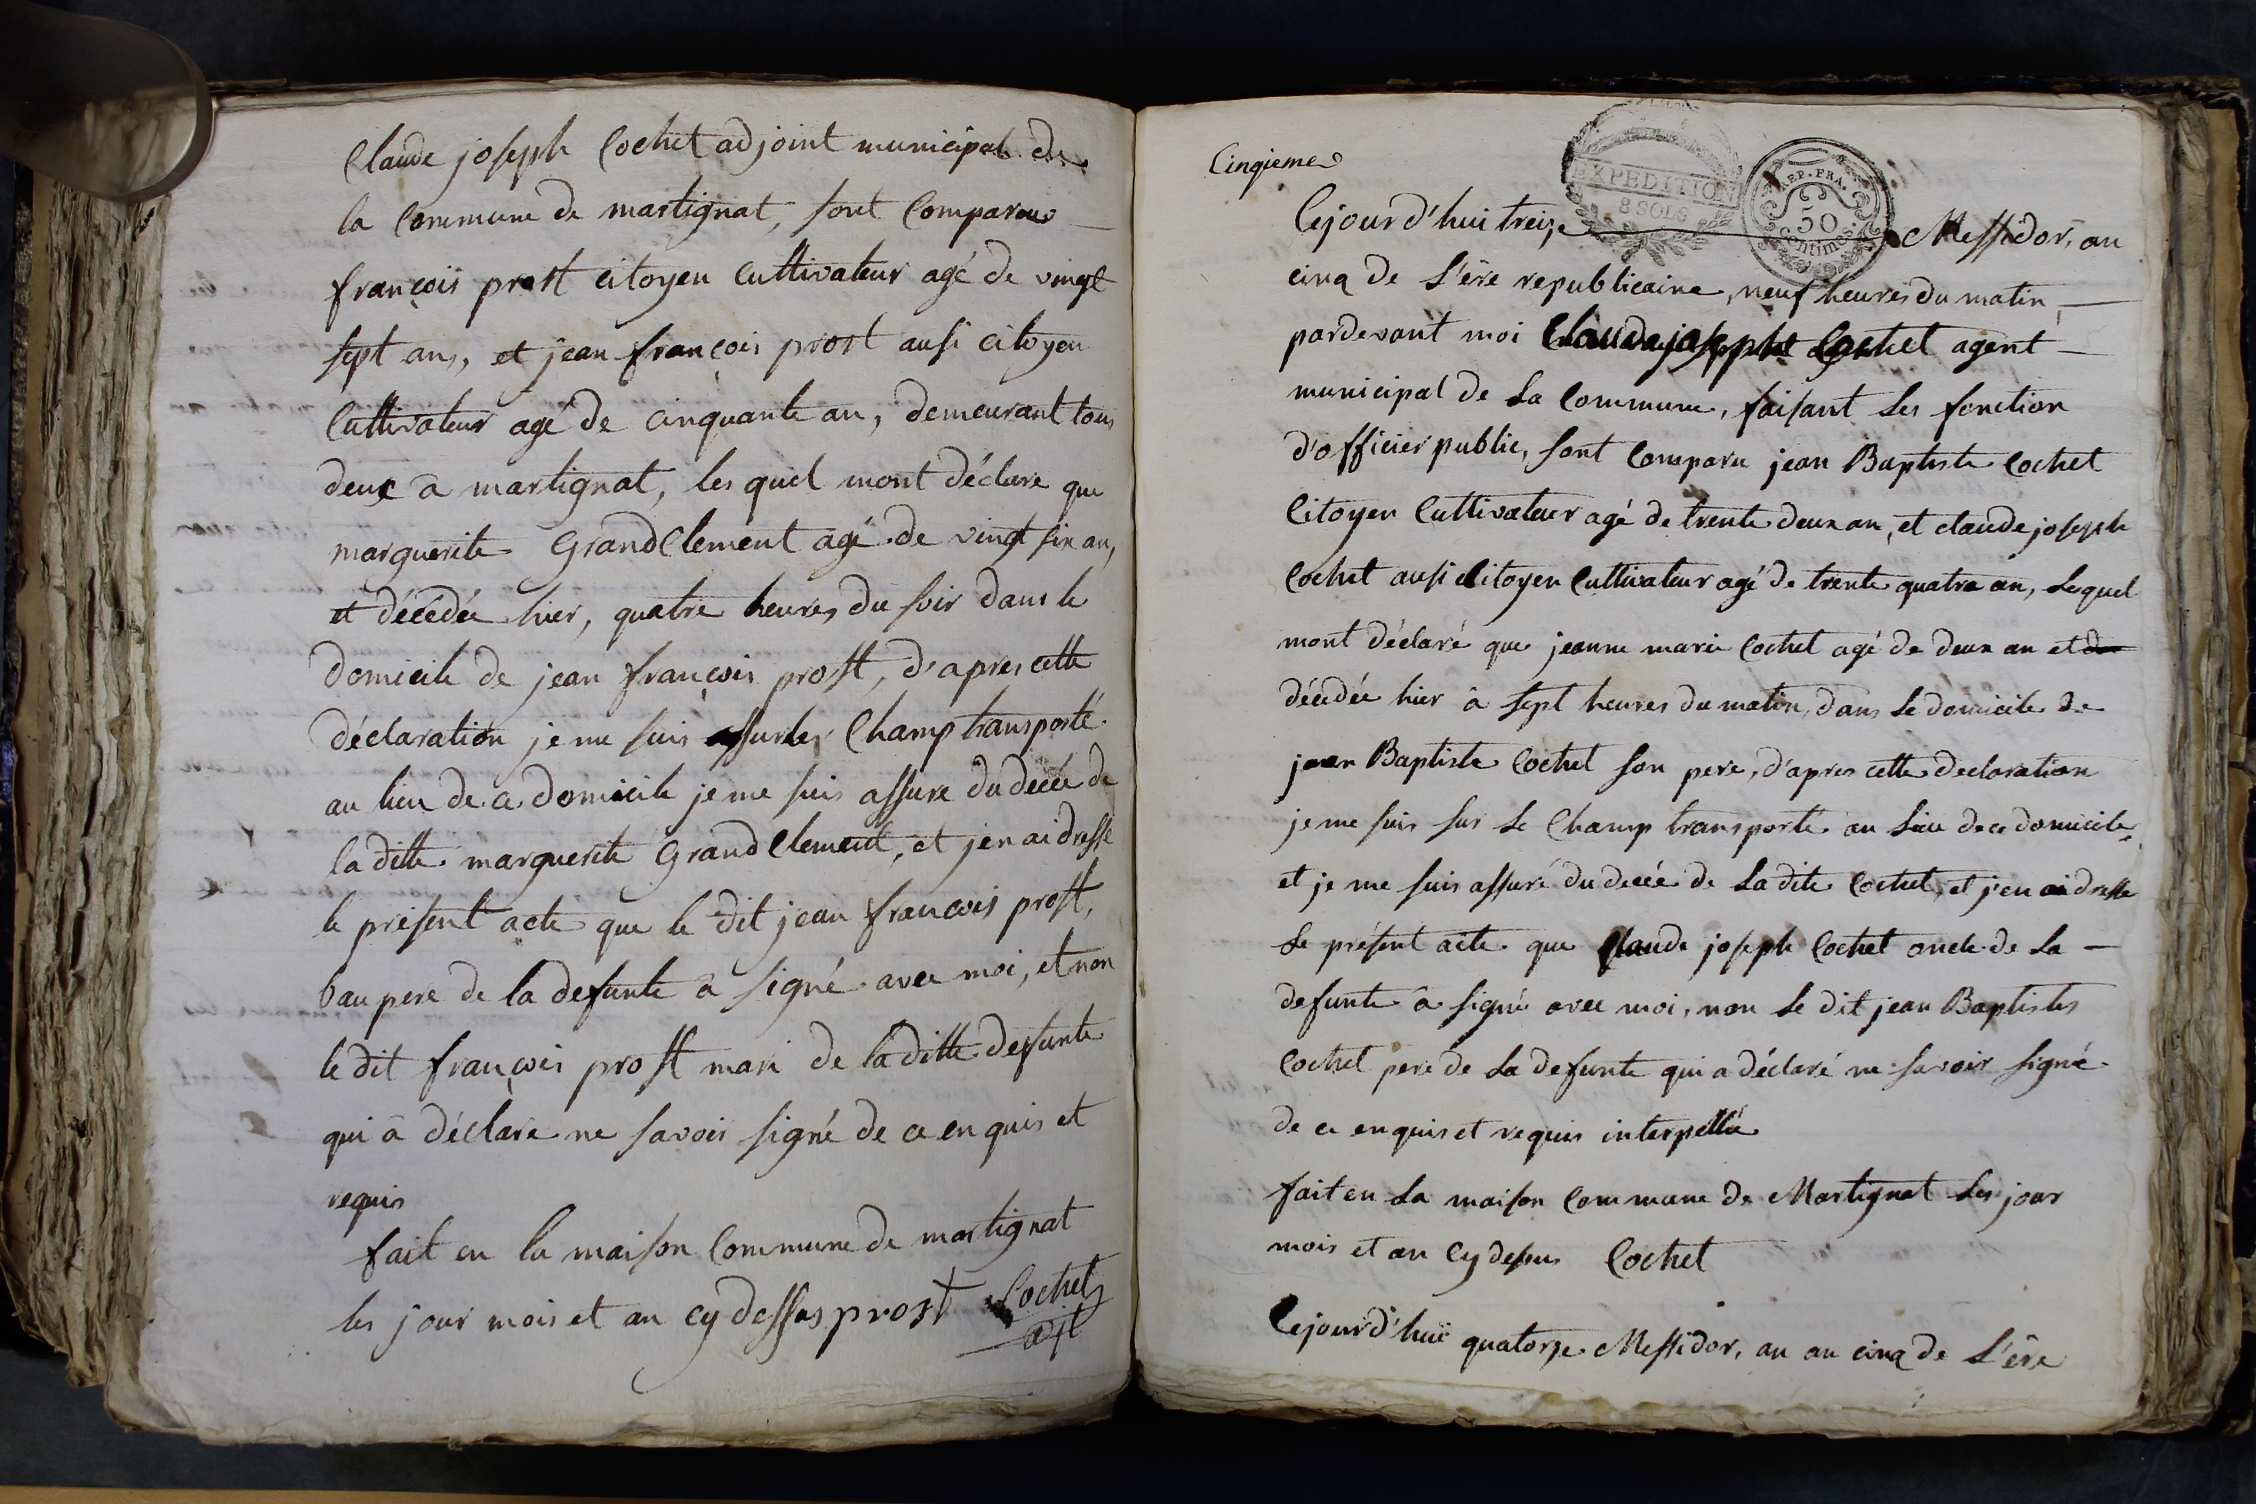 Claude joseph Cochet adjoint municipal de
la Commune de martignat, sont Comparue
françois prost citoyen Cultivateur agé de vingt
sept ans, et jean françois prost ausi citoyen
Cultivateur agé de cinquante an, demeurant tous
deux â martignat, les quel mont déclare que
marguerite GrandClement agé de vingt six an,
et décédée hier, quatre heures du soir dans le
domicile de jean françois prost, d'apres cette
déclaration je me suis sur le Champ transporté
au lieu de ce domicile je me suis assure du décée de
la ditte marguerite GrandClement, et j'en ai dresse
le présent acte que le dit jean francois prost,
bau pere de la defunte â signé avec moi, et non
le dit françois prost mari de la ditte defunte
qui â déclare ne savoir signé de ce enquis et
requis
fait en la maison Commune de martignat
les jour mois et an cy dessas prost Cochet
adjt
Cinqieme
EXPEDITION
8 SOLS
REP. FRA.
50
centimes.
Cejourd'hui treize Messidor, an
cinq de L'ére republicaine, neuf heures du matin
pardevant moi Claude joseph Cochet agent
municipal de La Commune, faisant Les fonction
d'officier public, sont Comparu jean Baptiste Cochet
Citoyen Cultivateur agé de trente deux an, et claude joseph
Cochet ausi Citoyen Cultivateur agé de trente quatre an, Lesquel
mont déclaré que jeanne marie Cochet agé de deux an et
décédée hier â sept heures du matin, dans Le domicile de
jean Baptiste Cochet son pere, d'apres cette declaration
je me suis sur Le Champ transporté au Lieu de ce domicile
et je me suis assuré du decée de La dite Cochet, et j'en ai dresse
Le présent acte que Claude joseph Cochet oncle de La
defunte â signé avec moi, non Le dit jean Baptistes
Cochet peré de La defunte qui a déclaré ne savoir signé
de ce enquis et requis interpellé
fait en La maison Commune de Martignat Les jour
mois et an Cy desus Cochet
Cejourd'hui quatorze Messidor, an an cinq de L'ére